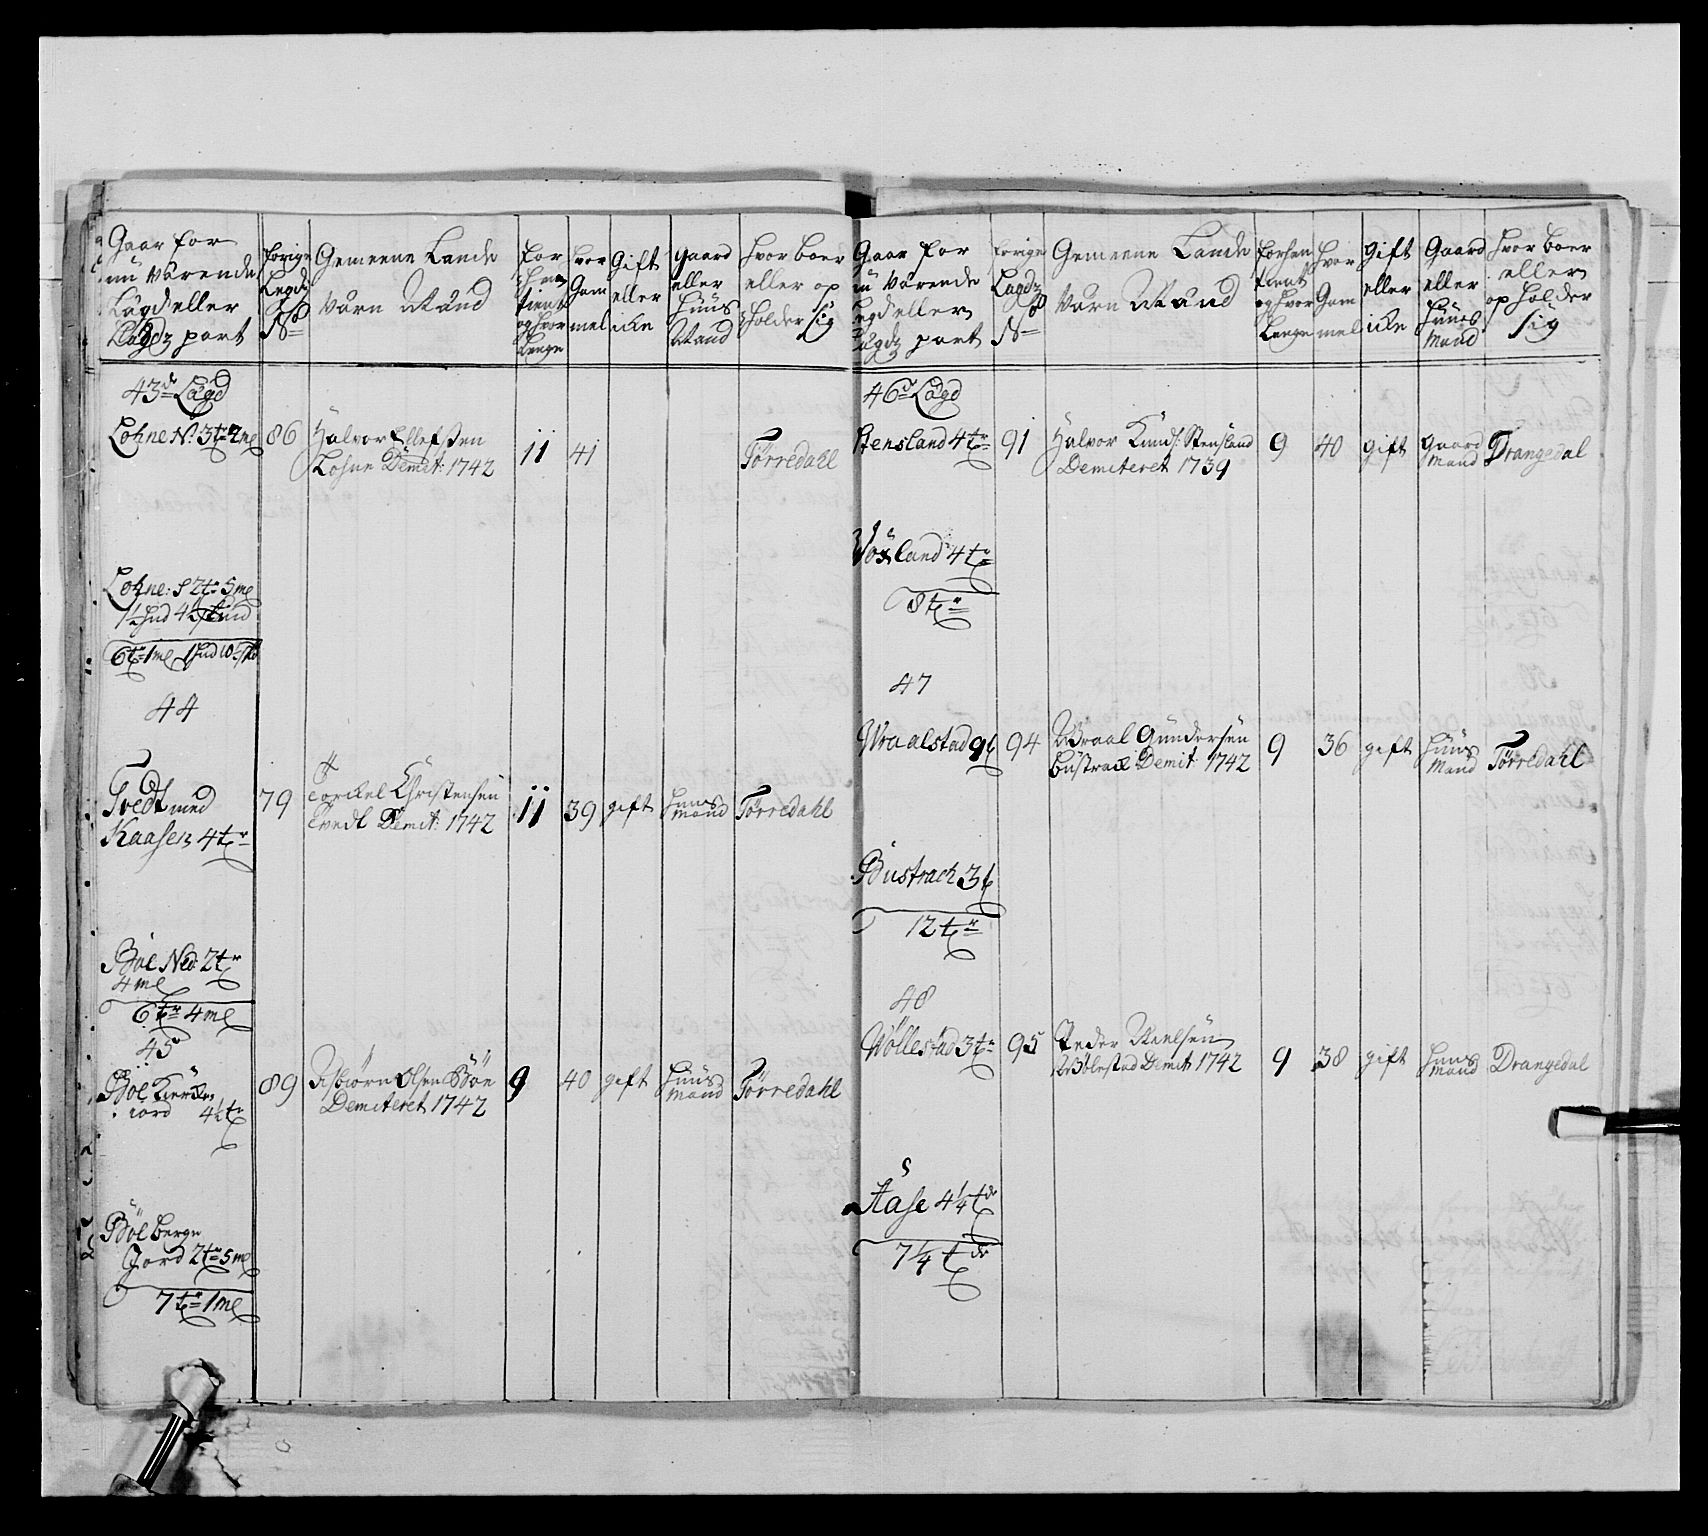 Gaar for
nu værende
Lægd eller
Lægdz part
forige
Legdz
No
Gemeene Lands
Værn Mand
For
hen
tient
og hvor
Lenge
hvor
Gam
mel
Gift
eller
icke
Gaard
eller
Huus
Mand
hvor boer
eller op
holder sig
43de Lægd
Lohne N: 3tr 2mel
86
Halvor Ellefsen
Lohne Demit: 1742
11
41
Tørredahl
Lohne: S 2tr 5mel
1½ hud
6tr 1mel 1 hud 10
44
Tvedt med
Kaasen 4tr
79
Torckel Christensen
Tvedt Demit: 1742
11
39
gift
Huus
Mand
Tørredahl
Bøe Ned: 2tr
4mel
6tr 4mel
45
Bøe
iord 4½tr
89
Asbiørn Olsen Bøe
Demiteret 1742
9
40
gift
Huus
Mand
Tørredahl
Bøe berge
Jord 2tr 5mel
7tr 1mel
Gaar for
nu værende
Legd eller
Lægdz part
forige
Lægdz
No
Gemeene Lands
Værn Mand
Forhen
tient
og hvor
Lenge
hvor
Gam
mel
Gift
eller
icke
Gaard
eller
Huus
Mand
hvor boer
eller
op holder
sig
46de Lægd
Stensland 4tr
91
Halvor Knuds: Stensland
Demiteret 1739
9
40
gift
gaard
Mand
Drangedal
Voxland 4tr
8tr
47
Wraalstad 9t
94
Wraal Gundersen
Bustrack Demit: 1742
9
36
gift
Huus
Mand
Tørredahl
Bustrach 3t
12tr
48
Wöllestad 3tr
95
Peder Neelsen
Wölestad Demit: 1742
9
38
gift
Huus
Mand
Drangedal
Aase 4¼tdr
7¼ tdr